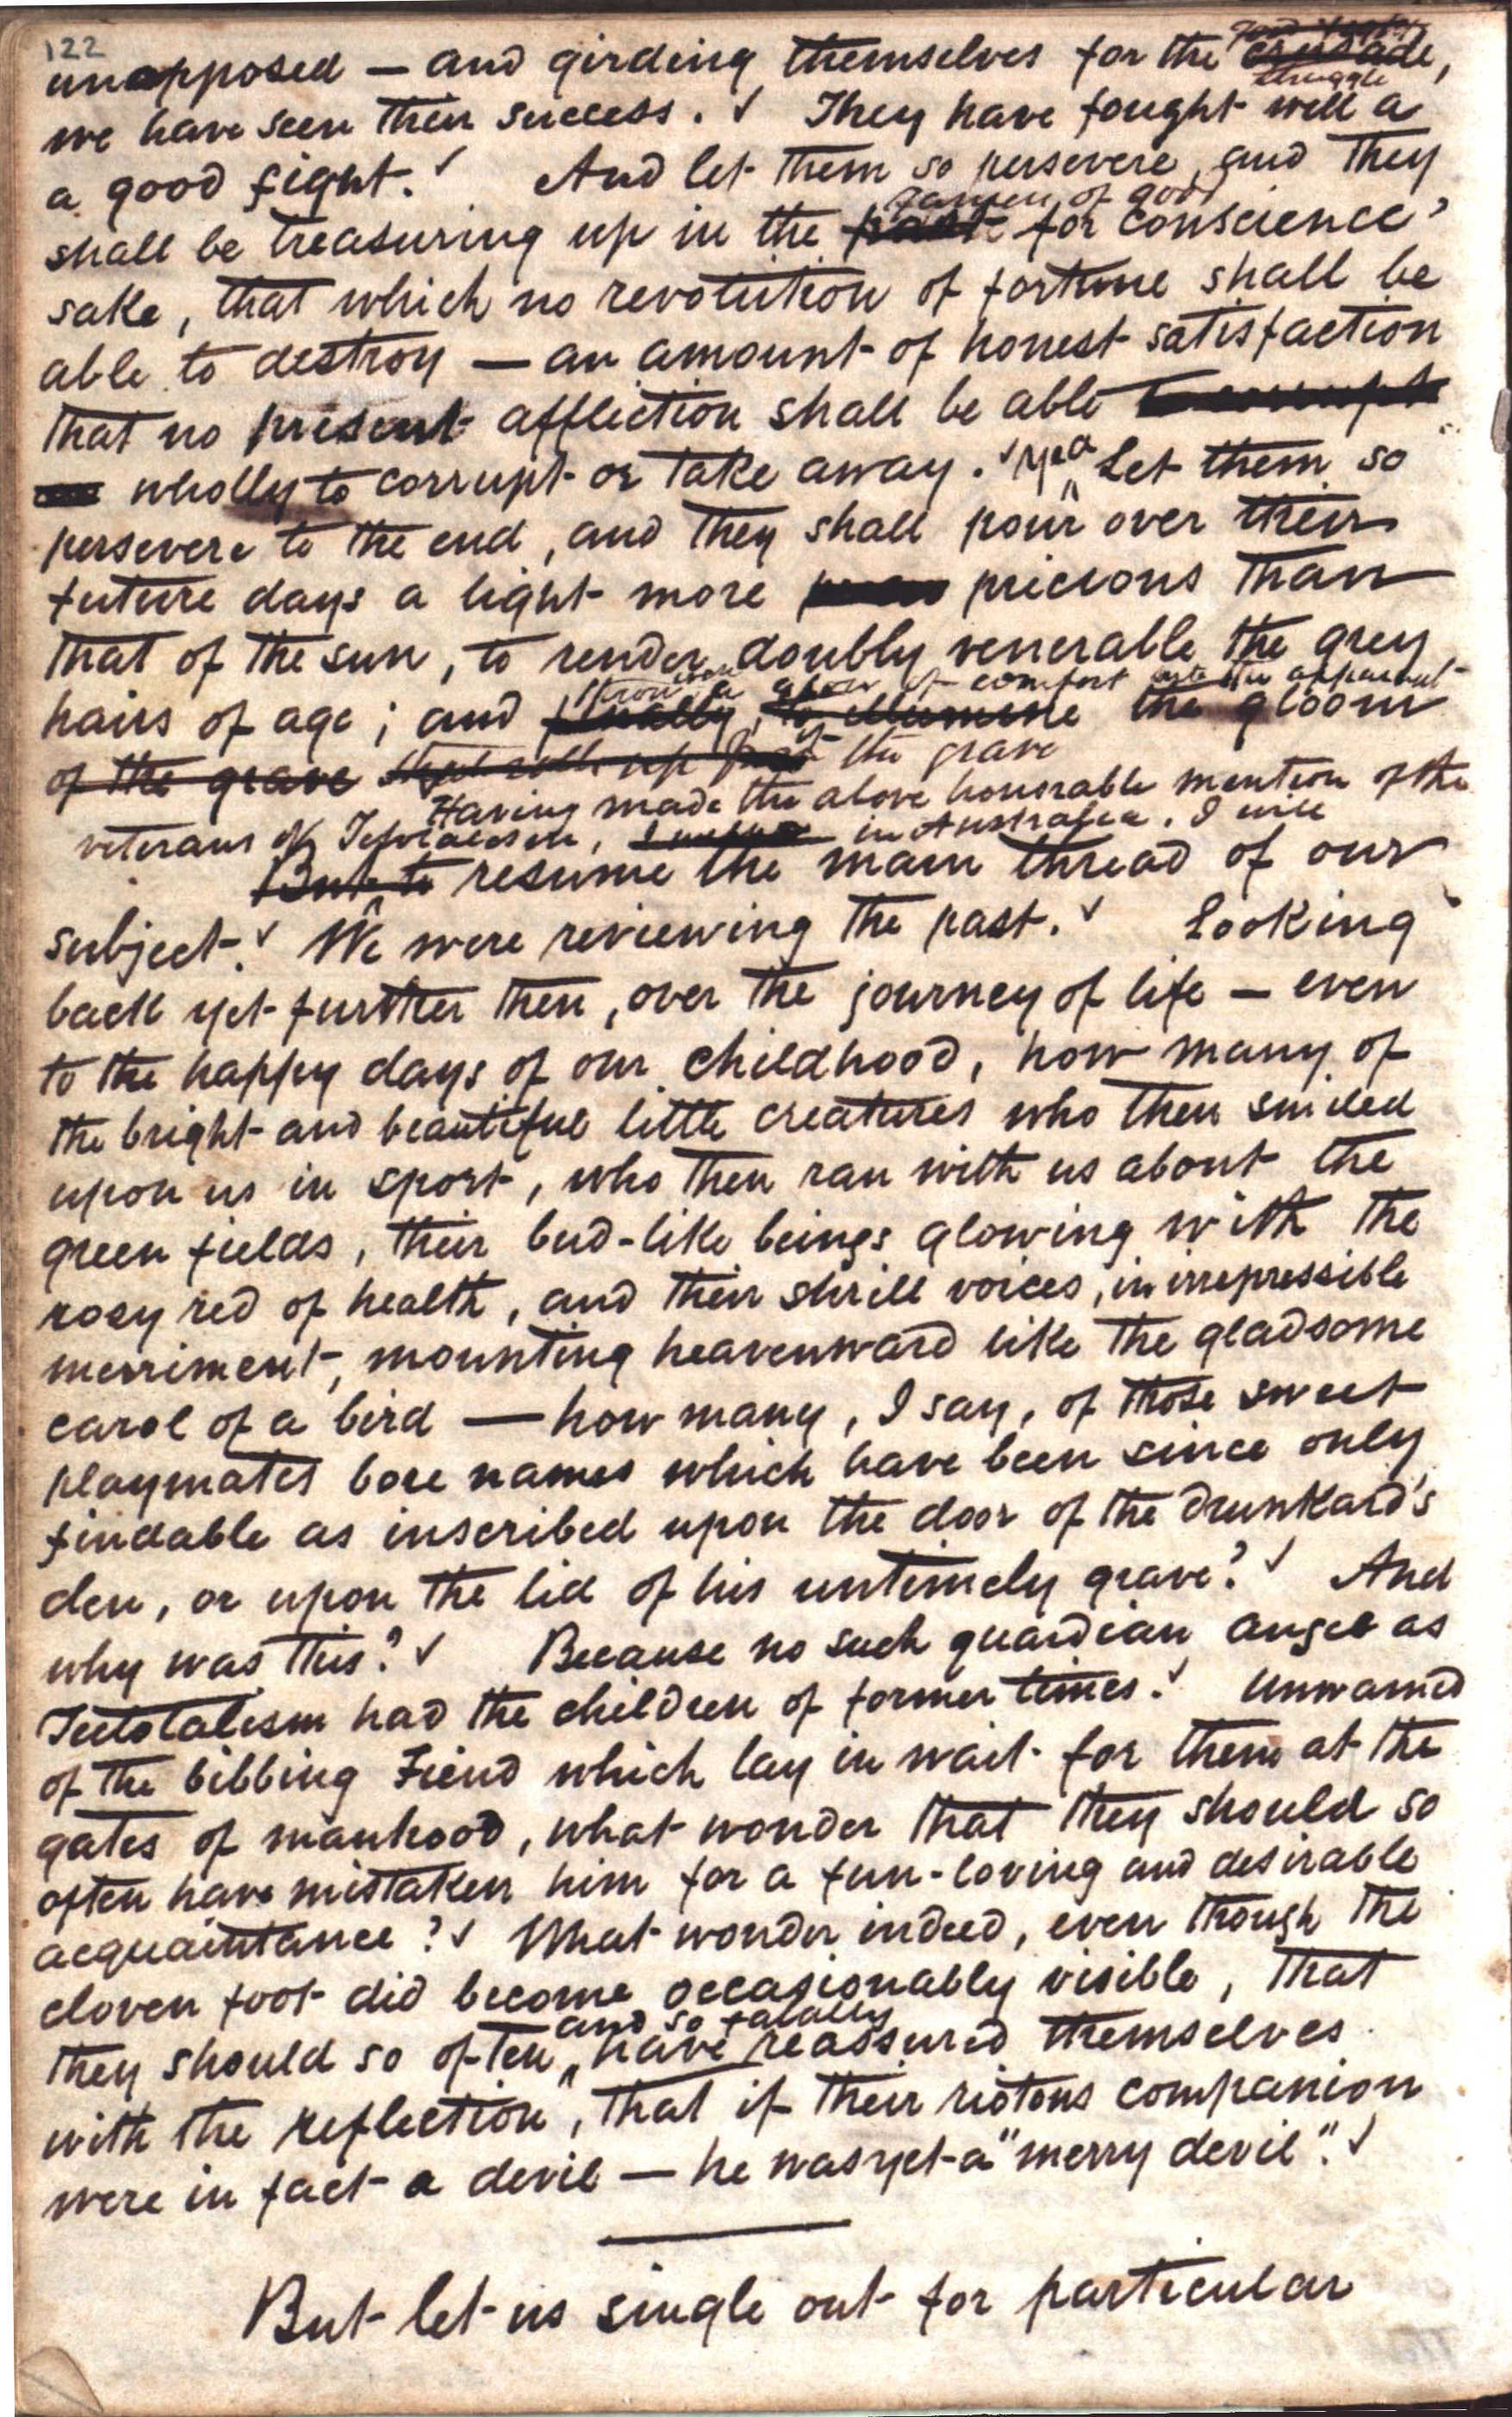 122
unopposed — and girding themselves for the crusade,
struggle
we have seen their success. They have fought well a
a good fight. And let them so persevere, and they
of good
shall be treasuring up in the for conscience'
sake, that which no revolution of fortune shall be
able to destroy — an amount of honest satisfaction
that no present affliction shall be able to corrupt
wholly to corrupt or take away. Yea Let them so
persevere to the end, and they shall pour over their
future days a light more precious than
that of the sun, to render doubly venerable the grey
throw a glow of comfort into the apparent
hairs of age; and finally, to illumine the gloom
of the grave that rolls up from of the grave
Having made the above honorable mention of the
veterans of Teetotalism, in Australia, I will
But to resume the main thread of our
subject. We were reviewing the past. Looking
back yet further then, over the journey of life — even
to the happy days of our childhood, how many of
the bright and beautiful little creatures who then smiled
upon us in sport, who then ran with us about the
green fields, their bud-like beings glowing with the
rosy red of health, and their shrill voices, in irrepressible
merriment, mounting heavenward like the gladsome
carol of a bird — how many, I say, of those sweet
playmates bore names which have been since only
findable as inscribed upon the door of the drunkard's
den, or upon the lid of his untimely grave? And
why was this? Because no such guardian angel as
Teetotalism had the children of former times. Unwarned
of the bibbing Fiend which lay in wait for them at the
gates of manhood, what wonder that they should so
often have mistaken him for a fun-loving and desirable
acquaintance? What wonder indeed, even though the
cloven foot did become occasionably visible, that
and so fatally
they should so often have reassured themselves
with the reflection, that if their riotous companion
were in fact a devil — he was yet a "merry devil".
But let us single out for particular